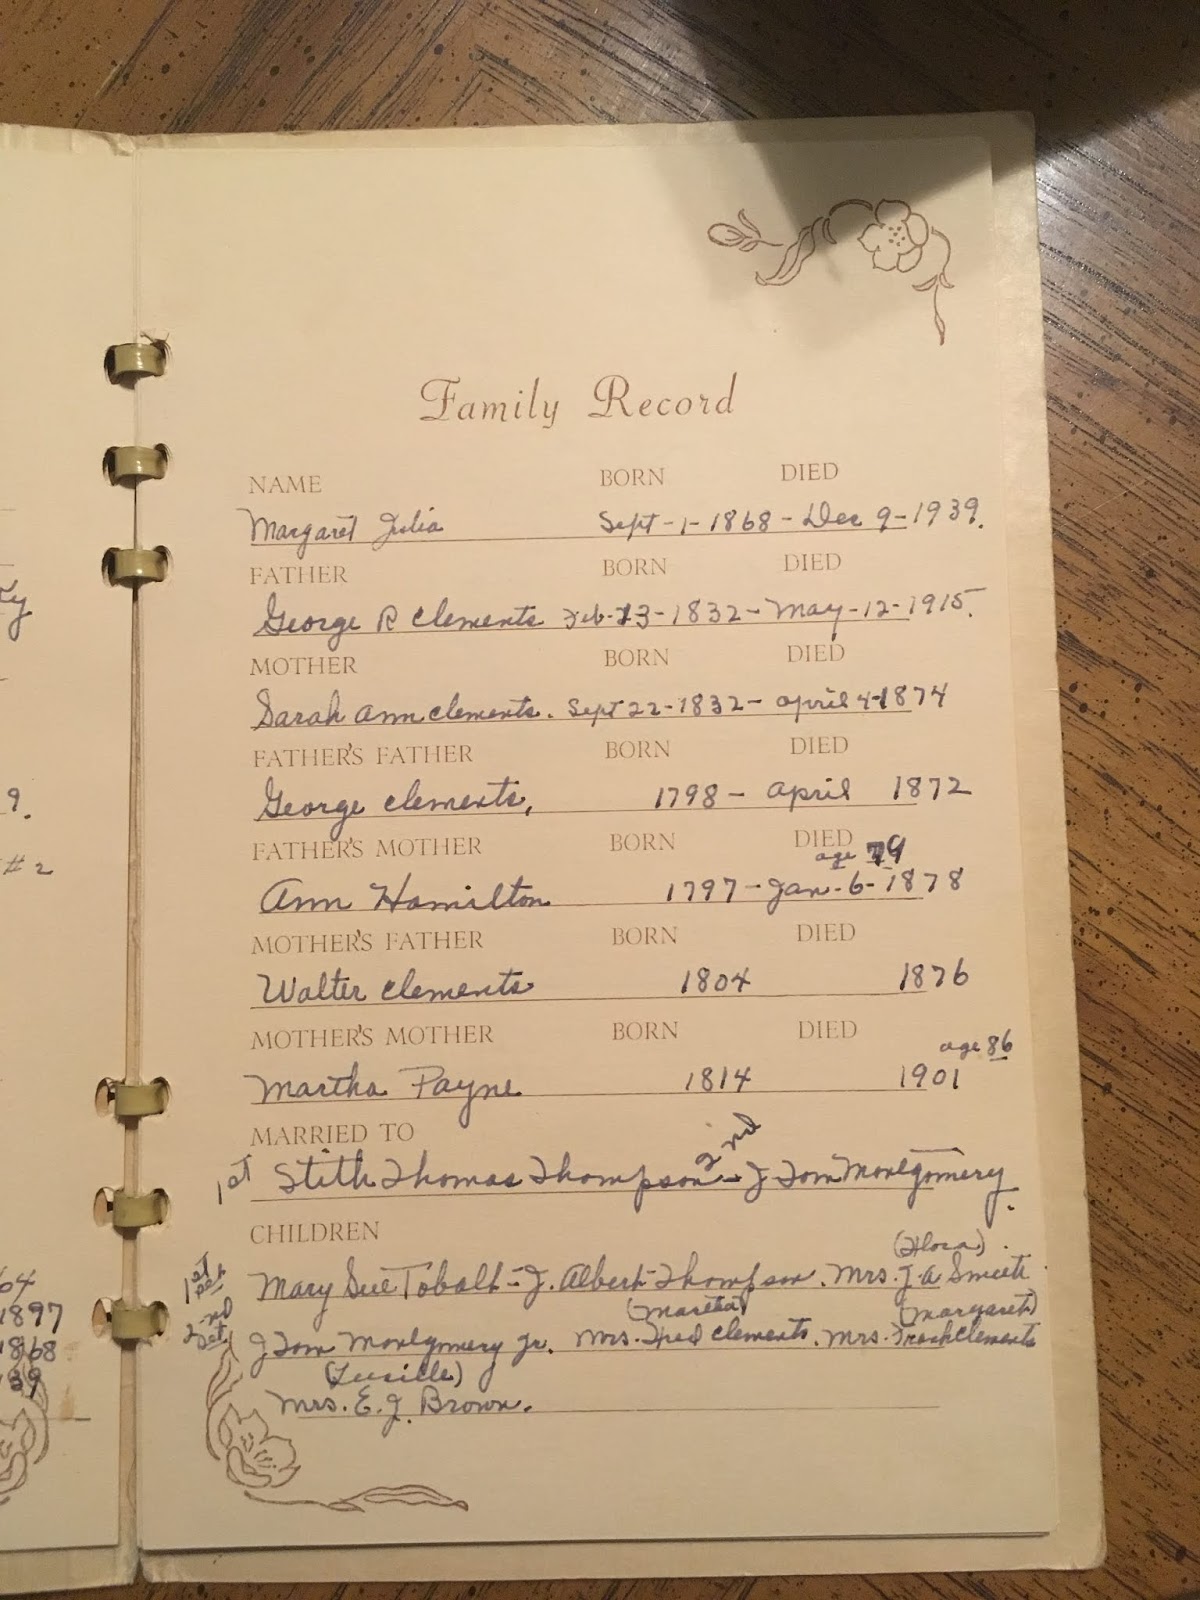 Family Record
NAME BORN DIED
Margaret Julia Sept-1-1868-Dec 9-1939.
FATHER BORN DIED
George R Clements Feb-23-1832-May-12-1915.
MOTHER BORN DIED
Sarah Ann Clements. Sept 22-1832-April 4-1874
FATHER'S FATHER BORN DIED
George Clements, 1798- April 1872
FATHER'S MOTHER BORN DIED
age 79
Ann Hamilton 1797-Jan-6-1878
MOTHER'S FATHER BORN DIED
Walter Clements 1804 1876
MOTHER'S MOTHER BORN DIED
age 86
Martha Payne 1814 1901
MARRIED TO
1st Stith Thomas Thompson 2nd - J Tom Montgomery.
CHILDREN
(Flora)
1st set Mary Sue Tobalt - J. Albert Thompson. Mrs. J. A Smith
(Martha) (Margaret)
2nd set J Tom Montgomery Jr. Mrs. Fred Clements. Mrs. Frank Clements
(Lucille)
Mrs. E. J. Brown.
9.
#2
64
1897
1868
39